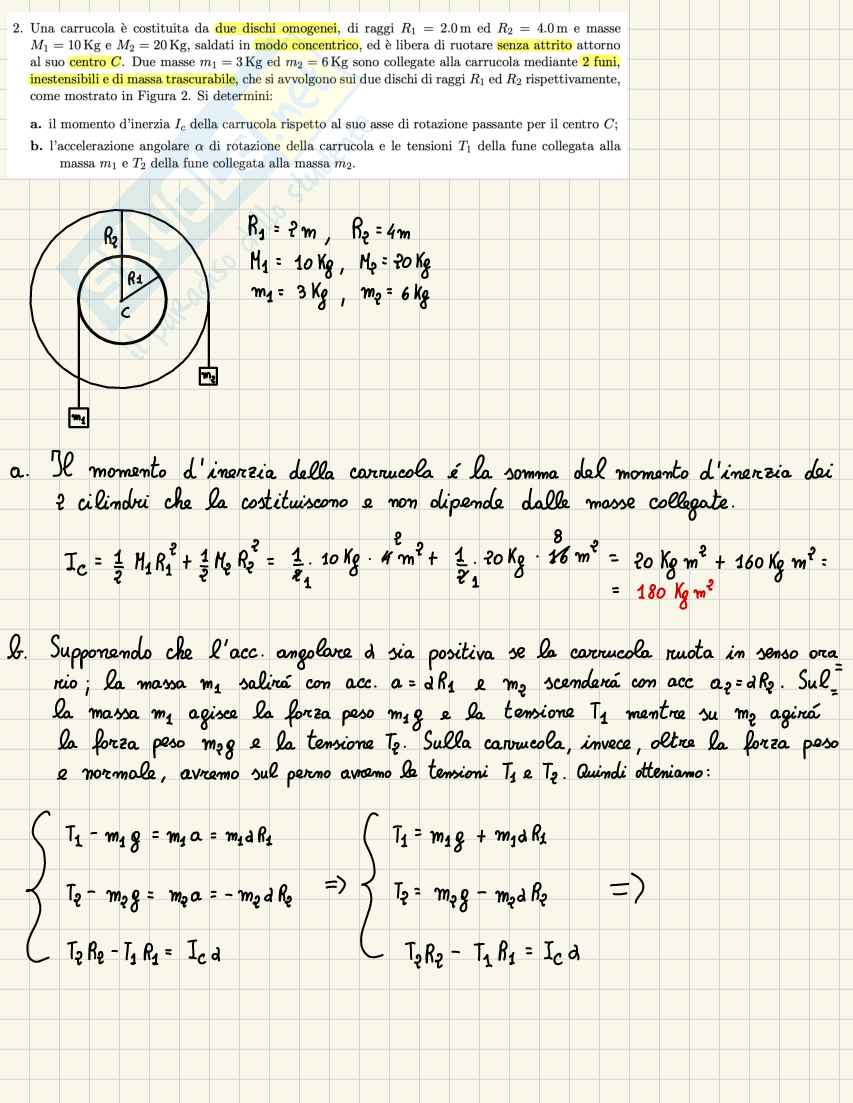 2. Una carrucola è costituita da due dischi omogenei, di raggi R₁ = 2.0 m ed R₂ = 4.0 m e masse
M₁ = 10 Kg e M₂ = 20 Kg, saldati in modo concentrico, ed è libera di ruotare senza attrito attorno
al suo centro C. Due masse m₁ = 3 Kg ed m₂ = 6 Kg sono collegate alla carrucola mediante 2 funi,
inestensibili e di massa trascurabile, che si avvolgono sui due dischi di raggi R₁ ed R₂ rispettivamente,
come mostrato in Figura 2. Si determini:
a. il momento d'inerzia I_c della carrucola rispetto al suo asse di rotazione passante per il centro C;
b. l'accelerazione angolare α di rotazione della carrucola e le tensioni T₁ della fune collegata alla
massa m₁ e T₂ della fune collegata alla massa m₂.
R₂
R1
C
m₂
m₁
R₁ = 2m , R₂ = 4m
M₁ = 10 Kg , M₂ = 20 Kg
m₁ = 3 Kg , m₂ = 6 Kg
a. Il momento d'inerzia della carrucola é la somma del momento d'inerzia dei
2 cilindri che la costituiscono e non dipende dalle masse collegate.
I_C = 1/2 M₁R₁² + 1/2 M₂R₂² = 1/2 1 · 10 Kg · 4 2 m² + 1/2 1 · 20 Kg · 16 8 m² = 20 Kg m² + 160 Kg m² =
= 180 Kg m²
b. Supponendo che l'acc. angolare α sia positiva se la carrucola ruota in senso ora
rio; la massa m₁ salirá con acc. a = αR₁ e m₂ scenderá con acc a₂ = αR₂. Sul=
la massa m₁ agisce la forza peso m₁g e la tensione T₁ mentre su m₂ agirá
la forza peso m₂g e la tensione T₂. Sulla carrucola, invece, oltre la forza peso
e normale, avremo sul perno avremo le tensioni T₁ e T₂. Quindi otteniamo:
T₁ - m₁g = m₁a = m₁αR₁ T₁ = m₁g + m₁αR₁
T₂ - m₂g = m₂a = -m₂αR₂ => T₂ = m₂g - m₂αR₂ =>
T₂R₂ - T₁R₁ = I_Cα T₂R₂ - T₁R₁ = I_Cα
SKUOLA.net
il paradiso dello studente